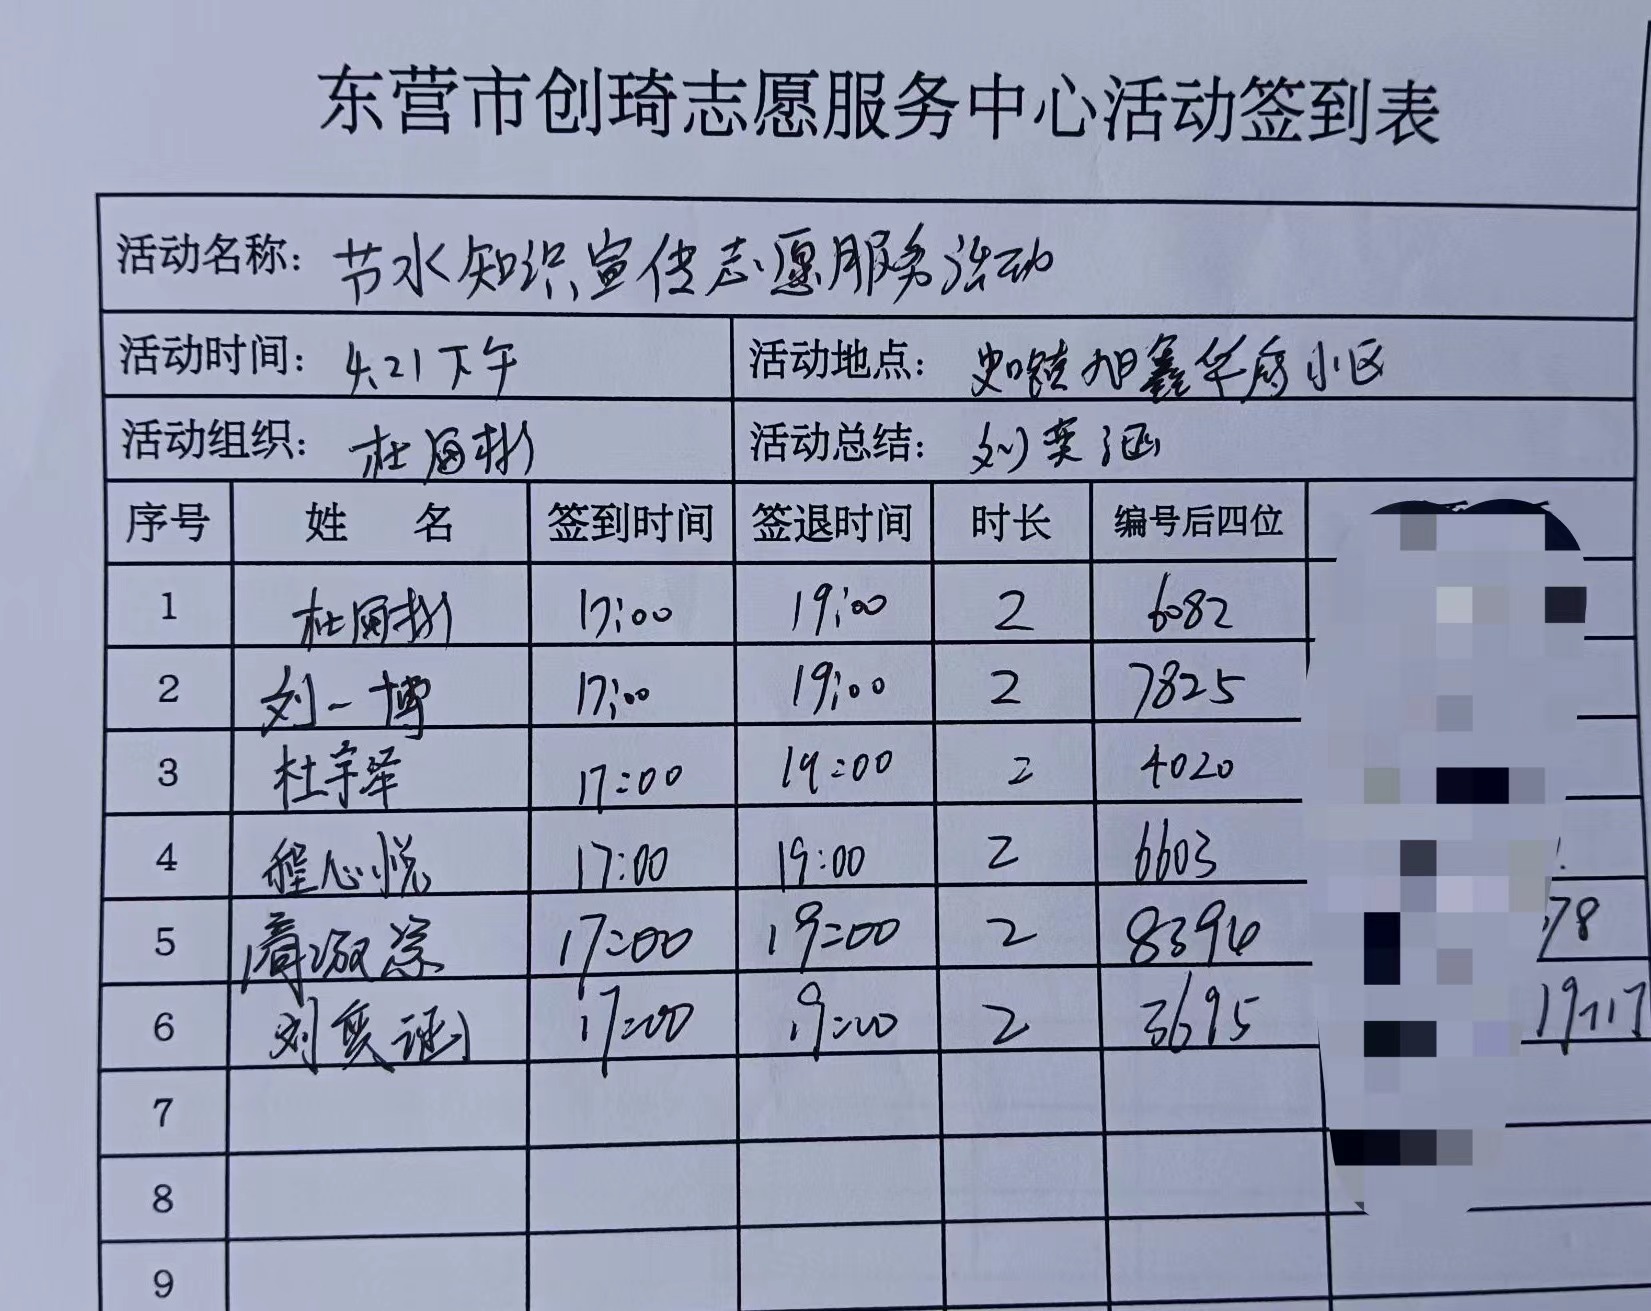 东营市创琦志愿服务中心活动签到表
活动名称: 节水知识宣传志愿服务活动
活动时间: 4.21下午 活动地点: 史口镇旭鑫华府小区
活动组织: 杜海彬 活动总结: 刘奕涵
序号 姓 名 签到时间 签退时间 时长 编号后四位
1 杜海彬 17:00 19:00 2 6082
2 刘一博 17:00 19:00 2 7825
3 杜宇泽 17:00 19:00 2 4020
4 程心悦 17:00 19:00 2 6603
5 17:00 19:00 2 8394 78
6 刘奕涵 17:00 19:00 2 3695
7
8
9